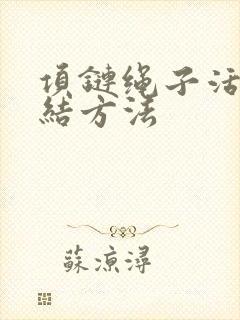 項鏈绳子活
結方法
蘇凉潯